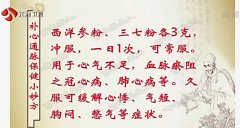 江苏卫视
补心通脉保健小妙方
西洋参粉、三七粉各3克，
冲服，一日1次，可常服。
用于心气不足，血脉瘀阻
之冠心病、肺心病等。久
服可缓解心悸、气短、
胸闷、憋气等症状。